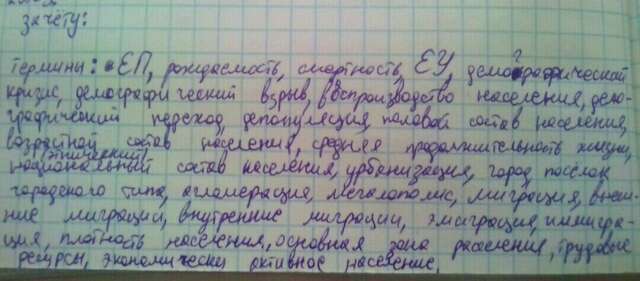 зачёту:
термины: ЕП, рождаемость, смертность, ЕУ, демографический
кризис, демографический взрыв, воспроизводство населения, демо-
графический переход, депопуляция, половой состав населения,
возрастной состав населения, средняя продолжительность жизни,
этнический
национальный состав населения, урбанизация, город, посёлок
городского типа, агломерация, мегалополис, миграция, внеш-
ние миграции, внутренние миграции, эмиграция, иммигра-
ция, плотность населения, основная зона расселения, трудовые
ресурсы, экономически активное население.